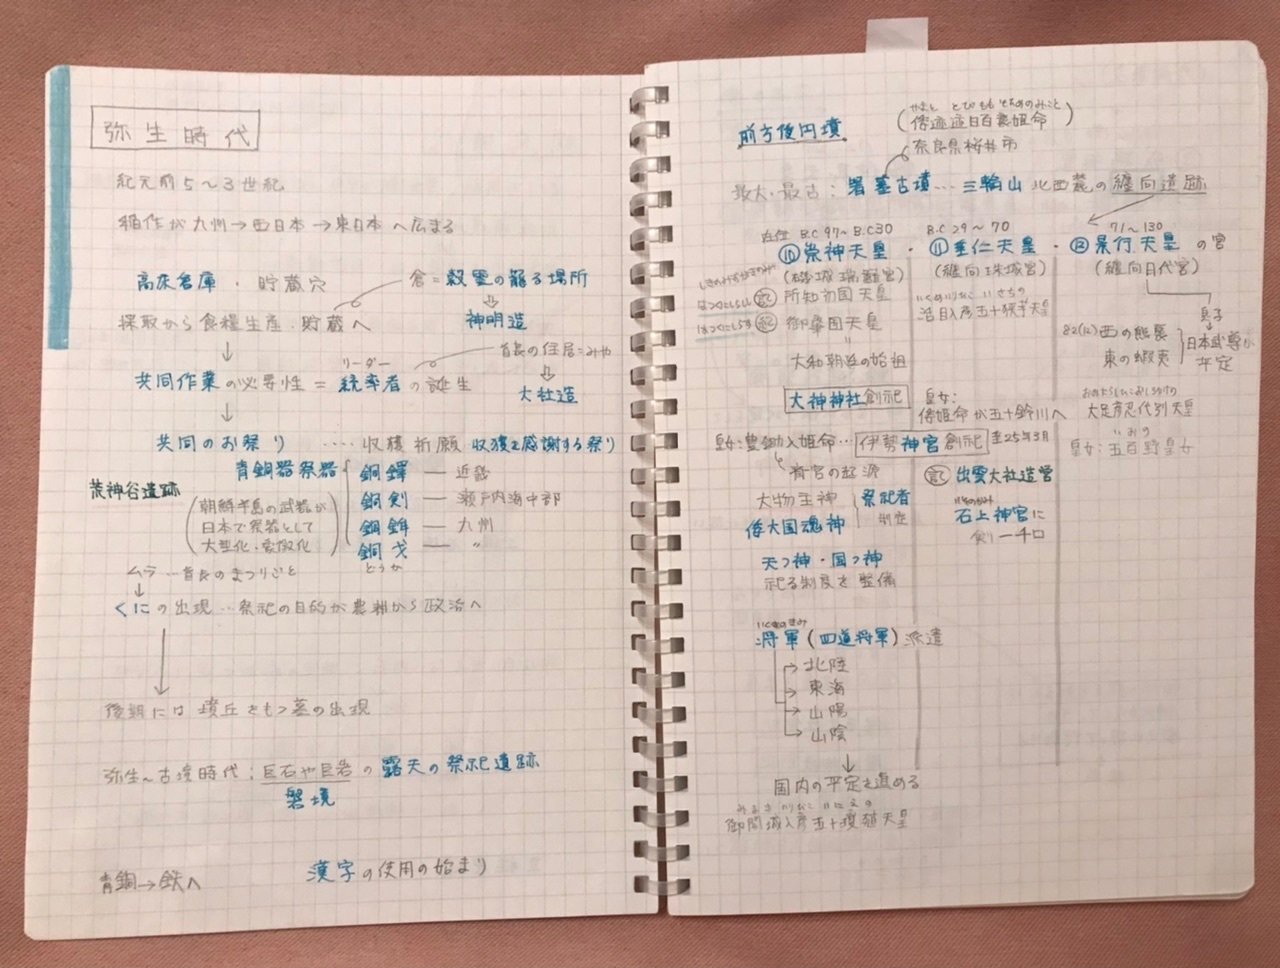 弥生時代
紀元前5〜3世紀
稲作が九州→西日本→東日本へ広まる
高床倉庫・貯蔵穴
倉=穀霊の籠る場所
⇩
神明造
採取から食糧生産・貯蔵へ
↓
首長の住居=みや
⇩
大社造
リーダー
共同作業の必要性=統率者の誕生
↓
共同のお祭り ‥‥収穫祈願 収穫を感謝する祭り
荒神谷遺跡
青銅器祭器
銅鐸 — 近畿
銅剣 — 瀬戸内海中部
銅鉾 — 九州
銅戈 — 〃
どうか
(朝鮮半島の武器が
日本で祭器として
大型化・象徴化)
ムラ…首長のまつりごと
↓
くにの出現…祭祀の目的が農耕から政治へ
↓
後期には墳丘をもつ墓の出現
弥生〜古墳時代:巨石や巨岩の露天の祭祀遺跡
磐境
青銅→鉄へ
漢字の使用の始まり
前方後円墳
やまと とびももそひめのみこと
(倭迹迹日百襲姫命)
奈良県桜井市
最大・最古:箸墓古墳…三輪山 北西麓の纏向遺跡
在位 B.C 97〜B.C30
⑩崇神天皇・
(磯城瑞籬宮)
B.C 29〜70
⑪垂仁天皇・
(纏向珠城宮)
71〜130
⑫景行天皇の宮
(纏向日代宮)
はつくにしらす
記 所知初国天皇
紀 御肇国天皇
〃
大和朝廷の始祖
大神神社創祀
皇女:豊鍬入姫命…
斎宮の起源
大物主神
倭大国魂神
祭祀者
天つ神・国つ神
祀る制度を整備
将軍(四道将軍)派遣
北陸
東海
山陽
山陰
↓
国内の平定を進める
御間城入彦五十瓊殖天皇
活目入彦五十狭茅天皇
皇女:
倭姫命が五十鈴川へ
伊勢神宮創祀 至25年3月
記 出雲大社造営
いそのかみ
石上神宮に
剣一千口
皇子
↓
82(12)西の熊襲
東の蝦夷
日本武尊が
平定
大足彦忍代別天皇
いおの
皇女:五百野皇女